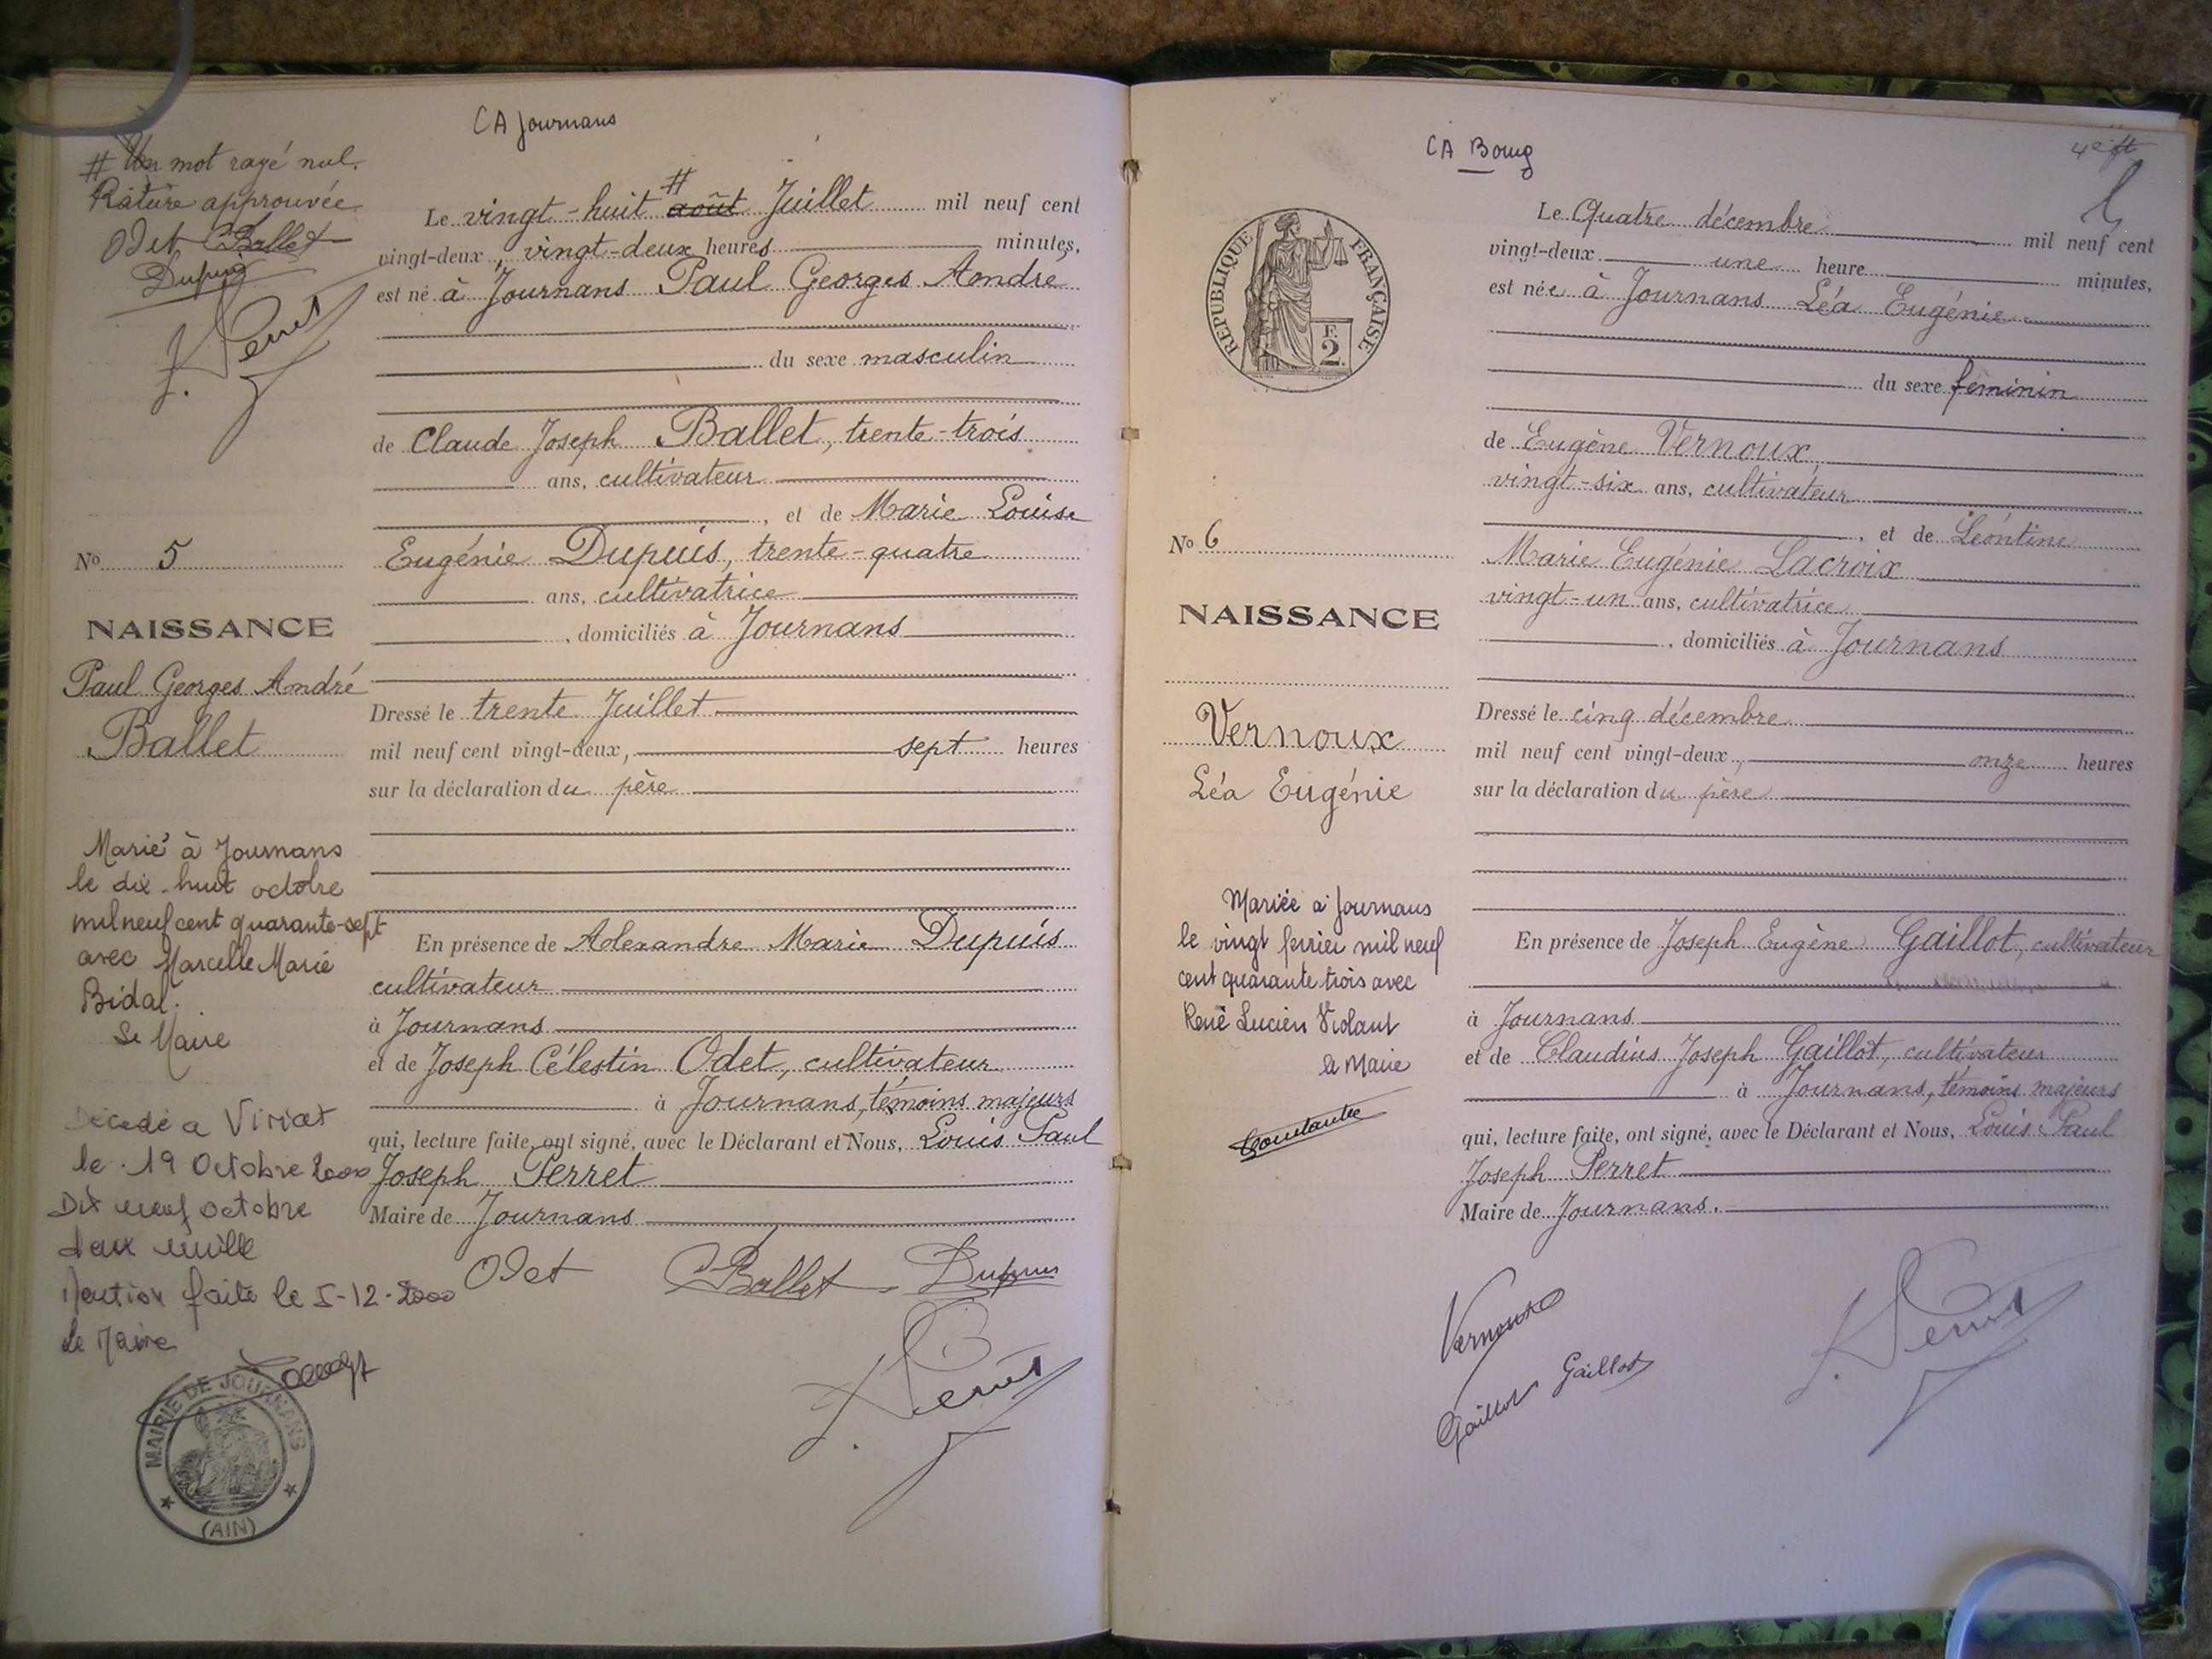 CA Journans
# Un mot rayé nul.
Rature approuvée
Odet CBallet
Dupuis
J. Perret
Le vingt-huit # août Juillet mil neuf cent
vingt-deux, vingt-deux heures minutes,
est né à Journans Paul Georges André
du sexe masculin
de Claude Joseph Ballet, trente-trois
ans, cultivateur
, et de Marie Louise
Eugénie Dupuis, trente-quatre
ans, cultivatrice
, domiciliés à Journans
Dressé le trente Juillet
mil neuf cent vingt-deux, sept heures
sur la déclaration du père
En présence de Alexandre Marie Dupuis
cultivateur
à Journans
et de Joseph Célestin Odet, cultivateur
à Journans, témoins majeurs
qui, lecture faite, ont signé, avec le Déclarant et Nous, Louis Paul
Joseph Perret
Maire de Journans
Odet CBallet Dupuis
J. Perret
No 5
NAISSANCE
Paul Georges André
Ballet
Marié à Journans
le dix-huit octobre
mil neuf cent quarante-sept
avec Marcelle Marie
Bidal.
Le Maire
Décédé a Viriat
le 19 Octobre 2000
Dix neuf octobre
deux mille
Mention faite le 5-12-2000
Le Maire
MAIRIE DE JOURNANS
(AIN)
CA Bourg
4e ft
RÉPUBLIQUE FRANÇAISE
E.
2.
Le Quatre décembre mil neuf cent
vingt-deux une heure minutes,
est née à Journans Léa Eugénie
du sexe féminin
de Eugène Vernoux,
vingt-six ans, cultivateur
, et de Léontine
Marie Eugénie Lacroix
vingt-un ans, cultivatrice
, domiciliés à Journans
Dressé le cinq décembre
mil neuf cent vingt-deux, onze heures
sur la déclaration du père
En présence de Joseph Eugène Gaillot, cultivateur
à Journans
et de Claudius Joseph Gaillot, cultivateur
à Journans, témoins majeurs
qui, lecture faite, ont signé, avec le Déclarant et Nous, Louis Paul
Joseph Perret
Maire de Journans.
Vernoux
Gaillot Gaillot
J. Perret
No 6
NAISSANCE
Vernoux
Léa Eugénie
Mariée à Journans
le vingt ferrier mil neuf
cent quarante trois avec
René Lucien Violant
le Maire